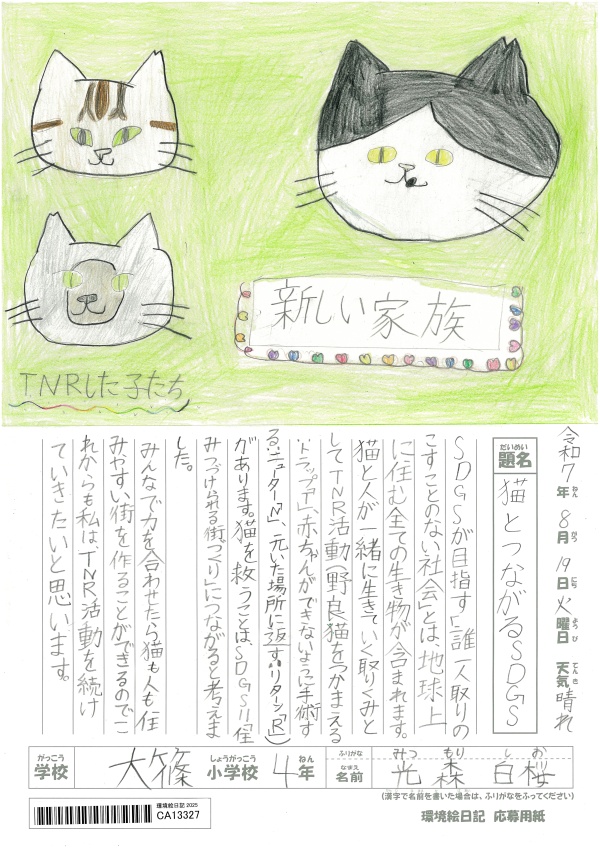 新しい家族
TNRした子たち
令和7年8月19日火曜日 天気晴れ
ねん がつ にち ようび てんき
だいめい
題名 猫とつながるSDGS
SDGSが目指す「誰一人取りの
こすことのない社会」とは、地球上
に住む全ての生き物が含まれます。
猫と人が一緒に生きていく取りくみと
してTNR活動(野良猫をつかまえる
「トラップT」、赤ちゃんができないように手術す
る「ニューターN」、元いた場所に返す「リターン「R」)
があります。猫を救うことは、SDGS11「住
みつづけられる街づくり」につながると考えま
した。
みんなで力を合わせたら猫も人も住
みやすい街を作ることができるのでこ
れからも私はTNR活動を続け
ていきたいと思います。
がっこう しょうがっこう ねん ふりがな みつ もり し お
学校 大篠 小学校 4年 なまえ 名前 光森 白桜
(漢字で名前を書いた場合は、ふりがなをふってください)
環境絵日記 2025
CA13327
環境絵日記 応募用紙